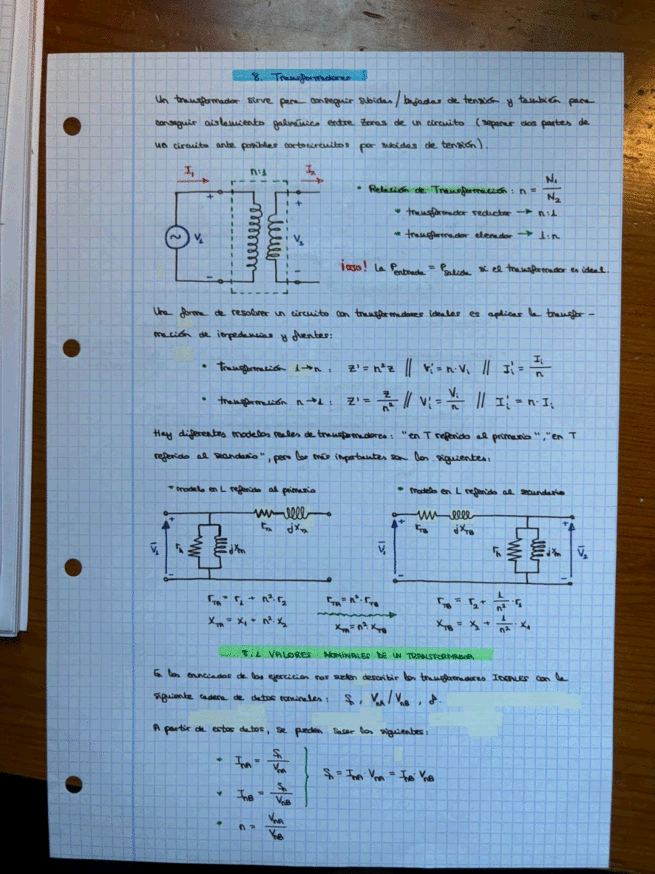 8. Transformadores
Un transformador sirve para conseguir subidas / bajadas de tensión y también para
conseguir aislamiento galvánico entre zonas de un circuito (separar dos partes de
un circuito ante posibles cortocircuitos por subidas de tensión).
I₁ n:1 I₂
+ + +
V₁ V₂
- - -
• Relación de Transformación: n = N₁/N₂
• transformador reductor → n:1
• transformador elevador → 1:n
¡OJO! La Pentrada = Psalida si el transformador es ideal
Una forma de resolver un circuito con transformadores ideales es aplicar la transfor-
mación de impedancias y fuentes:
• Transformación 1→n : Z' = n²Z // Vi' = n·Vi // Ii' = Ii/n
• transformación n→1 : Z' = Z/n² // Vi' = Vi/n // Ii' = n·Ii
Hay diferentes modelos reales de transformadores: "en T referido al primario", "en T
referido al secundario", pero los más importantes son los siguientes:
• modelo en L referido al primario
• modelo en L referido al secundario
+ rTA jXTA
V̄₁ rh jXm
-
+ rTB jXTB +
V̄₁ rh jXm V̄₂
- -
rTA = r₁ + n²·r₂
XTA = X₁ + n²·X₂
rTA = n²·rTB
XTA = n²·XTB
rTB = r₂ + 1/n²·r₁
XTB = X₂ + 1/n²·X₁
8.1 VALORES NOMINALES DE UN TRANSFORMADOR
En los enunciados de los ejercicios nos suelen describir los transformadores IDEALES con la
siguiente cadena de datos nominales: Sn, VnA/VnB, f.
A partir de estos datos, se pueden sacar los siguientes:
• InA = Sn/VnA
• InB = Sn/VnB
Sn = InA·VnA = InB·VnB
• n = VnA/VnB